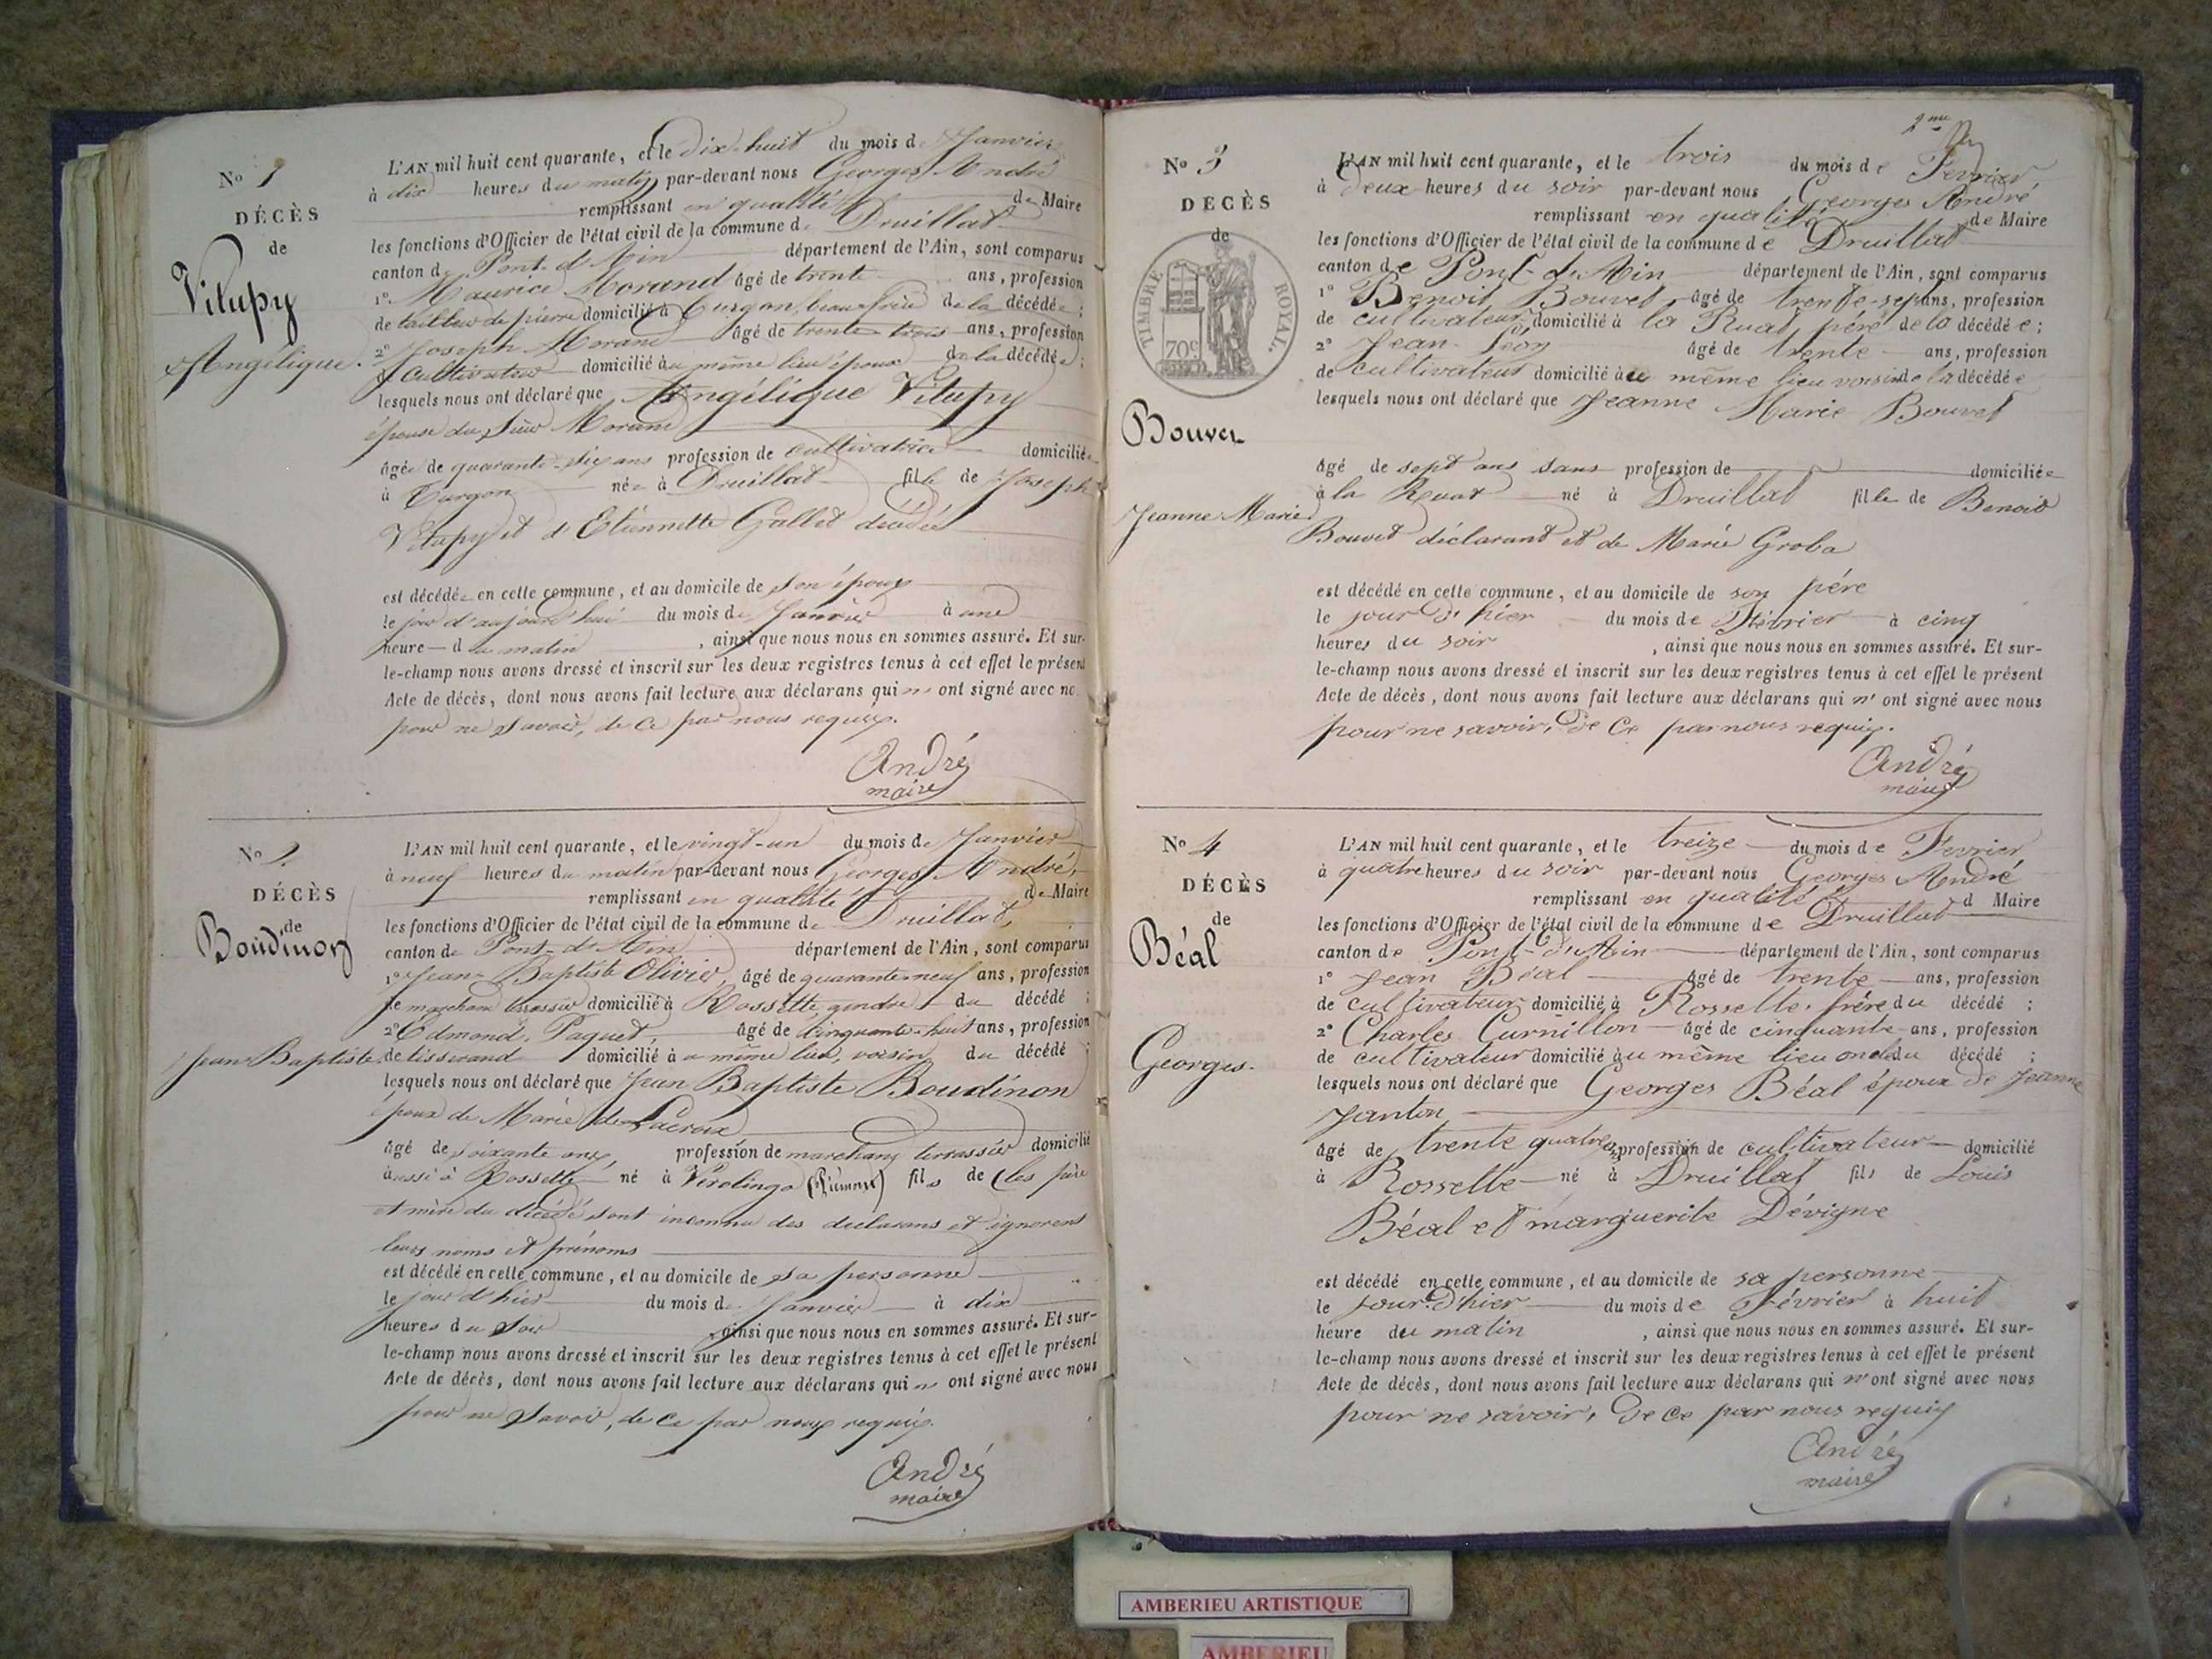 No 1
DÉCÈS
de
Vitupy
Angélique.
L'AN mil huit cent quarante, et le dix-huit du mois de Janvier
à dix heures du matin par-devant nous Georges André
remplissant en qualité de Maire
les fonctions d'Officier de l'état civil de la commune de Druillat
canton de Pont-d'Ain département de l'Ain, sont comparus
1° Maurice Morand âgé de trente ans, profession
de tailleur de pierre domicilié à Turgon, beau frère de la décédée ;
2° Joseph Morand âgé de trente trois ans, profession
d cultivateur domicilié au même lieu époux de la décédée ;
lesquels nous ont déclaré que Angélique Vitupy
épouse du Sieur Morand
âgée de quarante-six ans profession de cultivatrice domiciliée
à Turgon née à Druillat fille de Joseph
Vitupy et d'Etiennette Gallet décédée
est décédée en cette commune, et au domicile de son époux
le jour d'aujourd'hui du mois de Janvier à une
heure du matin , ainsi que nous nous en sommes assuré. Et sur-
le-champ nous avons dressé et inscrit sur les deux registres tenus à cet effet le présent
Acte de décès, dont nous avons fait lecture aux déclarans qui n' ont signé avec no
pour ne savoir, de ce par nous requis.
André
maire
No 2.
DÉCÈS
de
Boudinon
Jean Baptiste
L'AN mil huit cent quarante, et le vingt-un du mois de Janvier
à neuf heures du matin par-devant nous Georges André,
remplissant en qualité de Maire
les fonctions d'Officier de l'état civil de la commune de Druillat,
canton de Pont-d'Ain département de l'Ain, sont comparus
1° Jean Baptiste Olivier, âgé de quarante-neuf ans, profession
de marchand terrassier domicilié à Rossette, gendre du décédé ;
2° Edmond Paquet, âgé de cinquante-huit ans, profession
de tisserand domicilié à u même lieu, voisin du décédé ;
lesquels nous ont déclaré que Jean Baptiste Boudinon
époux de Marie Lacroix
âgé de soixante ans, profession de marchand terrassier domicilié
aussi à Rossette né à Virolingo (Piémont) fils de (les père
et mère du décédé sont inconnu des declarans et ignorent
leurs noms et prénoms
est décédé en cette commune, et au domicile de sa personne
le jour d'hier du mois de Janvier à dix
heures du Soir , ainsi que nous nous en sommes assuré. Et sur-
le-champ nous avons dressé et inscrit sur les deux registres tenus à cet effet le présent
Acte de décès, dont nous avons fait lecture aux déclarans qui n' ont signé avec nous
pour ne savoir, de ce par nous requis.
André
maire
2me
No 3
DÉCÈS
de
TIMBRE ROYAL.
70c
Bouvet
Jeanne Marie
L'AN mil huit cent quarante, et le trois du mois de Fevrier
à deux heures du soir par-devant nous Georges André
remplissant en qualité de Maire
les fonctions d'Officier de l'état civil de la commune de Druillat
canton de Pont-d'Ain département de l'Ain, sont comparus
1° Benoit Bouvet âgé de trente-sept ans, profession
de cultivateur domicilié à la Ruat, père de la décédée ;
2° Jean Léon âgé de trente ans, profession
de cultivateur domicilié au même lieu voisin de la décédée
lesquels nous ont déclaré que Jeanne Marie Bouvet
âgé de sept ans sans profession de domiciliée
à la Ruat né à Druillat fille de Benoit
Bouvet déclarant et de Marie Groba
est décédé en cette commune, et au domicile de son père
le jour d'hier du mois de Février à cinq
heures du soir , ainsi que nous nous en sommes assuré. Et sur-
le-champ nous avons dressé et inscrit sur les deux registres tenus à cet effet le présent
Acte de décès, dont nous avons fait lecture aux déclarans qui n' ont signé avec nous
pour ne savoir, de ce par nous requis.
André
maire
No 4
DÉCÈS
de
Béal
Georges.
L'AN mil huit cent quarante, et le treize du mois de Fevrier
à quatre heures du soir par-devant nous Georges André
remplissant en qualité d Maire
les fonctions d'Officier de l'état civil de la commune de Druillat
canton de Pont-d'Ain département de l'Ain, sont comparus
1° Jean Béal âgé de trente ans, profession
de cultivateur domicilié à Rossette, frère du décédé ;
2° Charles Curnillon âgé de cinquante ans, profession
de cultivateur domicilié au même lieu oncle du décédé ;
lesquels nous ont déclaré que Georges Béal époux de Jeanne
Janton
âgé de trente quatre profession de cultivateur domicilié
à Rossette né à Druillat fils de Louis
Béal et marguerite Dévigne
est décédé en cette commune, et au domicile de sa personne
le jour d'hier du mois de Février à huit
heure du matin , ainsi que nous nous en sommes assuré. Et sur-
le-champ nous avons dressé et inscrit sur les deux registres tenus à cet effet le présent
Acte de décès, dont nous avons fait lecture aux déclarans qui n' ont signé avec nous
pour ne savoir, de ce par nous requis
André
maire
AMBERIEU ARTISTIQUE
AMBERIEU